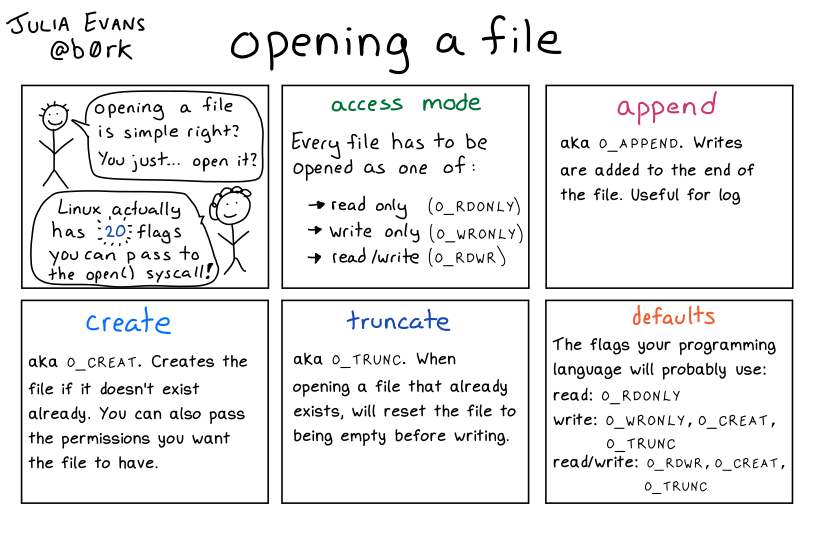 JULIA EVANS
@b0rk
opening a file
opening a file
is simple right?
You just... open it?
Linux actually
has 20 flags
you can pass to
the open() syscall!
access mode
Every file has to be
opened as one of:
→ read only (O_RDONLY)
→ write only (O_WRONLY)
→ read/write (O_RDWR)
append
aka O_APPEND. Writes
are added to the end of
the file. Useful for log
create
aka O_CREAT. Creates the
file if it doesn't exist
already. You can also pass
the permissions you want
the file to have.
truncate
aka O_TRUNC. When
opening a file that already
exists, will reset the file to
being empty before writing.
defaults
The flags your programming
language will probably use:
read: O_RDONLY
write: O_WRONLY, O_CREAT,
O_TRUNC
read/write: O_RDWR, O_CREAT,
O_TRUNC